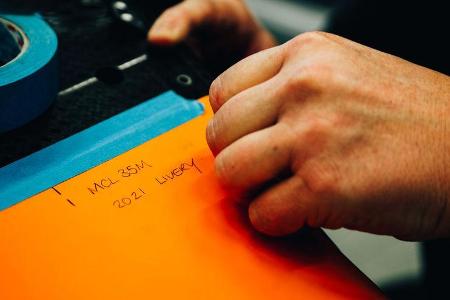 MCL 35M
2021 LIVERY